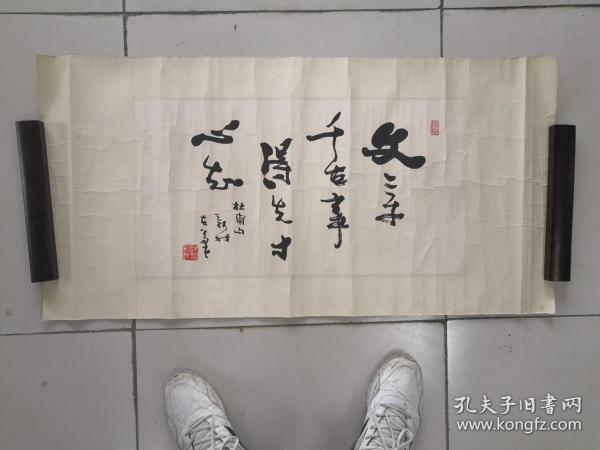 文章
千古事
得失寸
心知
杜甫
孔夫子旧书网
www.kongfz.com